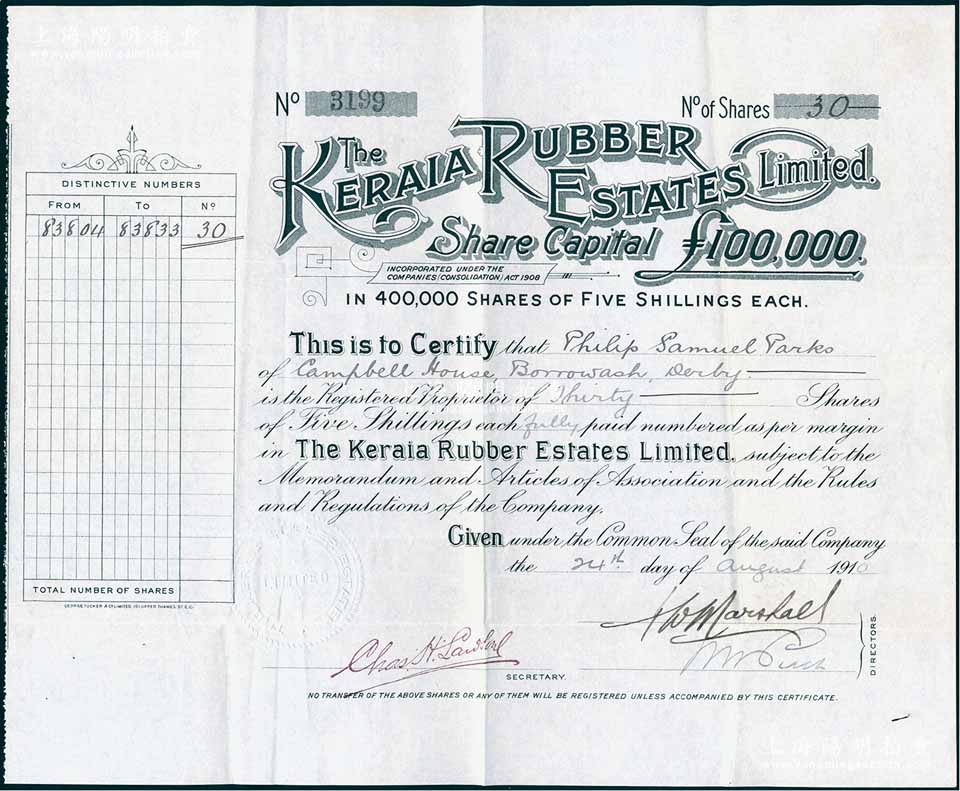 上海陽明拍賣
Nº 3199
Nº of Shares 30
The
KERAIA RUBBER
ESTATES Limited.
Share Capital £100,000.
INCORPORATED UNDER THE
COMPANIES (CONSOLIDATION) ACT 1908
IN 400,000 SHARES OF FIVE SHILLINGS EACH.
DISTINCTIVE NUMBERS
FROM TO Nº
83804 83833 30
TOTAL NUMBER OF SHARES
This is to Certify that Philip Samuel Parks
of Campbell House, Borrowash, Derby
is the Registered Proprietor of Thirty Shares
of Five Shillings each fully paid numbered as per margin
in The Keraia Rubber Estates Limited. subject to the
Memorandum and Articles of Association and the Rules
and Regulations of the Company.
Given under the Common Seal of the said Company
the 24th day of August 1910
Marshall
DIRECTORS.
Chas. H.
SECRETARY.
NO TRANSFER OF THE ABOVE SHARES OR ANY OF THEM WILL BE REGISTERED UNLESS ACCOMPANIED BY THIS CERTIFICATE.
LIMITED
上海陽明拍賣